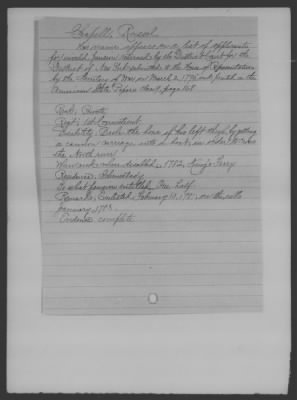 Chapell, Russel
His name appears on a list of applicants
for invalid pension returned by the District Court for the
District of submitted to the House of Representatives
by the Secretary of War, on March 2, 1795 and printed in the
American State Papers Class 9, page
Rank, Private
Regt, 1st Connecticut
Disability, the bone of his left thigh by getting
a cannon carriage into a boat, in order to cross
the North river
When and where disabled, 1782, King's Ferry
Residence,
To what pension entitled, One half
Remarks, Enlisted February 10, on the rolls
January, 1783.
Evidence complete